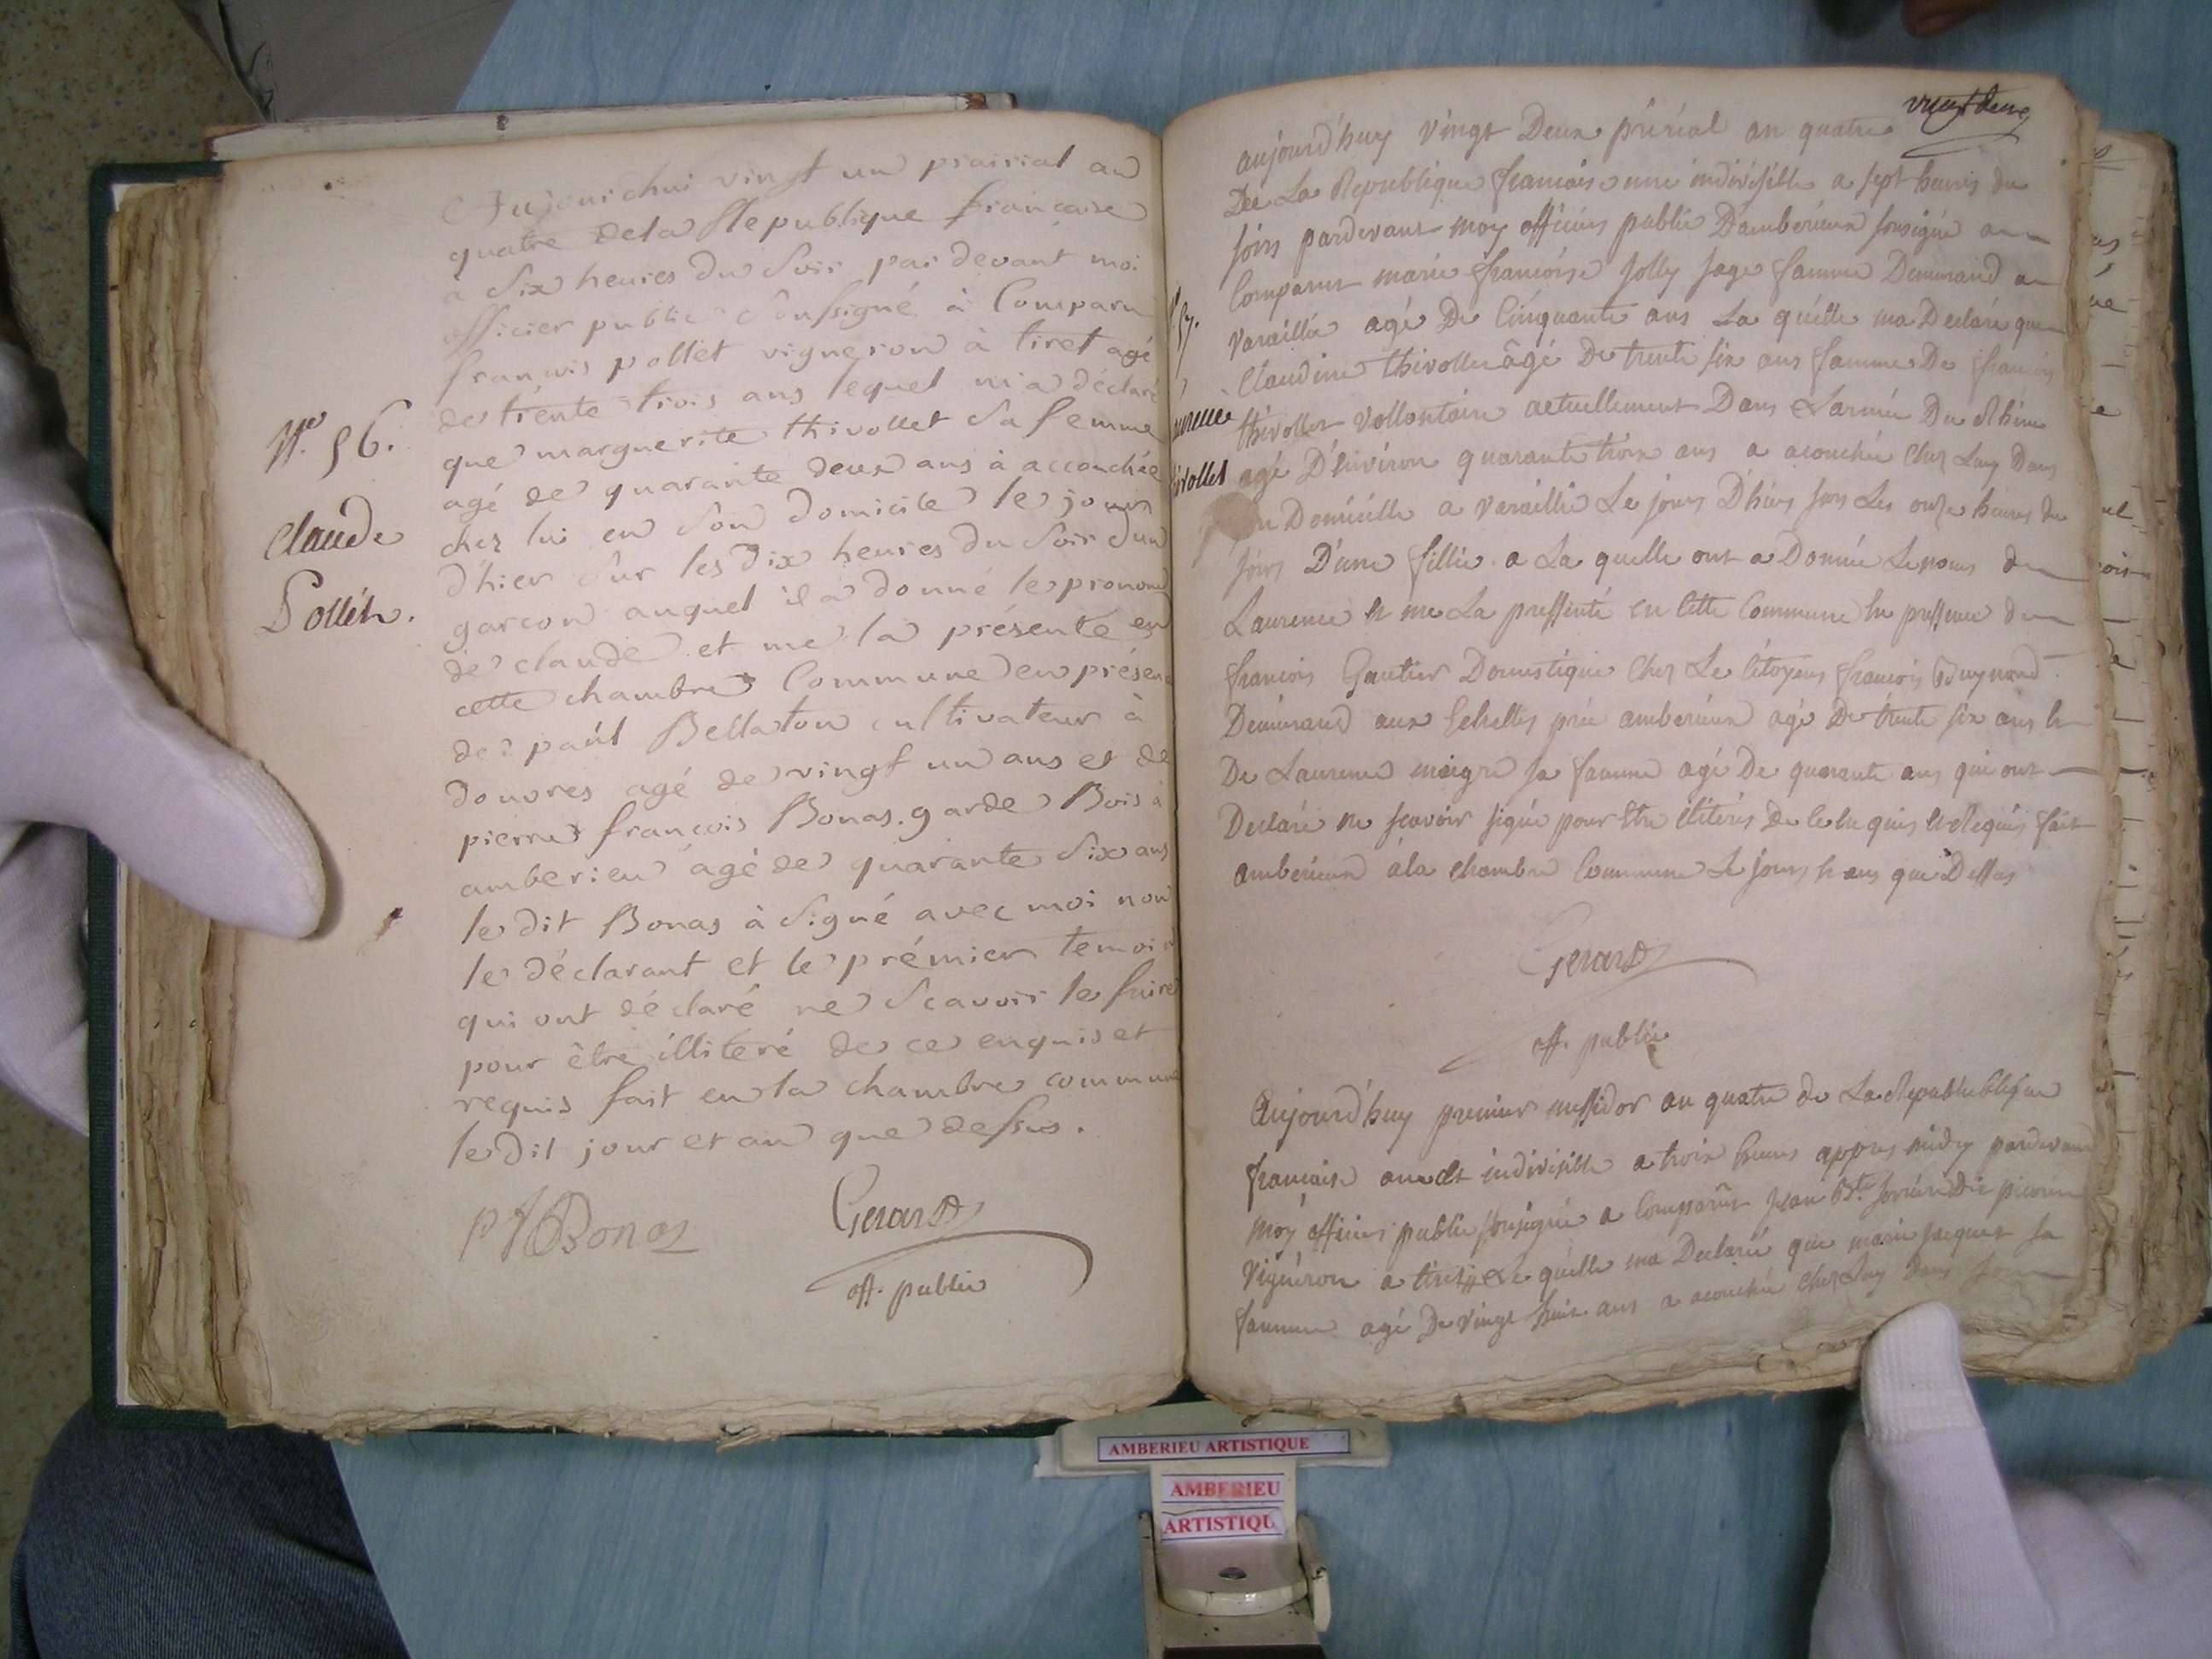 Aujourdhui vingt un prairial an
quatre dela Republique française
a six heures du soir par devant moi
officier public soussigné à Comparu
francois pollet vigneron à tiret agé
de trente trois ans lequel m'a déclaré
que marguerite thivollet sa femme
agé de quarante deux ans à accouchée
chez lui en son domicile le jour
d'hier sur les dix heures du soir d'un
garcon auquel il a donné le pronom
de claude et me la présenté en
cette chambre Commune en présen
de paul Bellaton cultivateur à
douvres agé de vingt un ans et de
pierre françois Bonas garde Bois à
amberieu agé de quarante six ans
le dit Bonas à signé avec moi non
le déclarant et le prémier temoin
qui ont déclaré ne scavoir le faire
pour être illiteré de ce enquis et
requis fait en la chambre commune
le dit jour et an que dessus.
N.° 56.
Claude
Pollet.
P f Bonas
Gerard
off. public
vingt deux
aujourd'huy vingt Deux prérial an quatre
De La Republique francaise une indivisille a sept heures du
soirs pardevant moy officier public Dambérieux sousigné a
Comparut marie francoise Jolly sage famme Demeurand a
Varaillie agé De Cinquante ans La quélle ma Declaré que
Claudine thivollet âgé De trente six ans famme De francois
thivollet vollontaire actuellement Dans Larmée Du Rhin
agé D'environ quarante trois ans a acouchée chez Luy Dans
Domicille a varaillie Le jours D'hiers sur Les onze heures du
soirs D'une fillie a La quelle ont a Donnée Le nom de
Laurence et me La pressenté en Cette Commune En pressence de
francois Gautier Domestique Chez Le Citoyens francois
Demeurand aux Echelles prée amberieux agé De trente six ans Et
De Laurence maigre sa famme agé De quarante ans qui ont
Declaré ne scavoir signé pour Etre élitérés De Ce En quis Et Requis fait
amberieux a la chambre Commune Le jours Et ans que Dessus
57.
Laurence
thivollet
Gerard
off. public
Aujourd'huy premier messidor an quatre de La Republiblique
francaise une Et indivisible a trois heures appres midy pardevand
moy officier public sousigné a Comparut Jean Bte
Vigneron a tiret Le quélle ma Declaré que marie jacquet sa
famme agé De vingt huit ans a acouchée chez Luy Dans
AMBERIEU ARTISTIQUE
AMBERIEU
ARTISTIQU